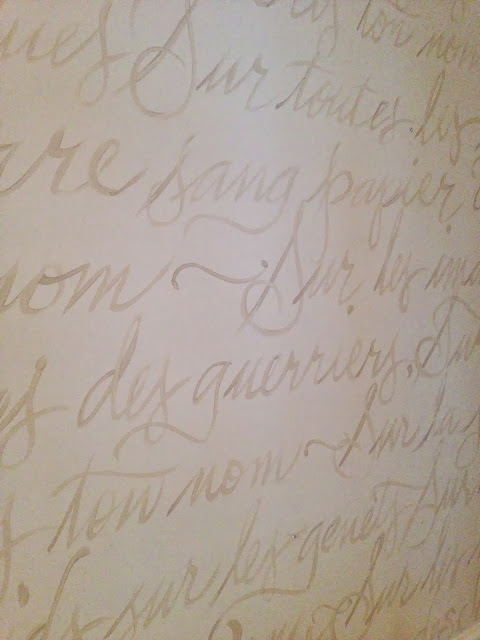 ton nom
Sur toutes les
sang papier
nom ~ Sur les ima
des guerriers. Sur
ton nom ~ Sur la
sur les genêts Sur
Sur